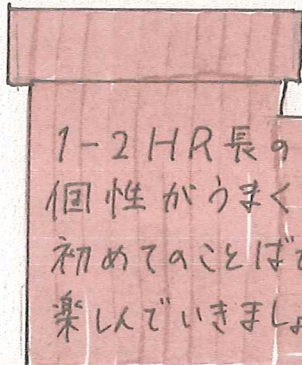 1-2HR長の
個性がうまく
初めてのことばで
楽しんでいきましょ